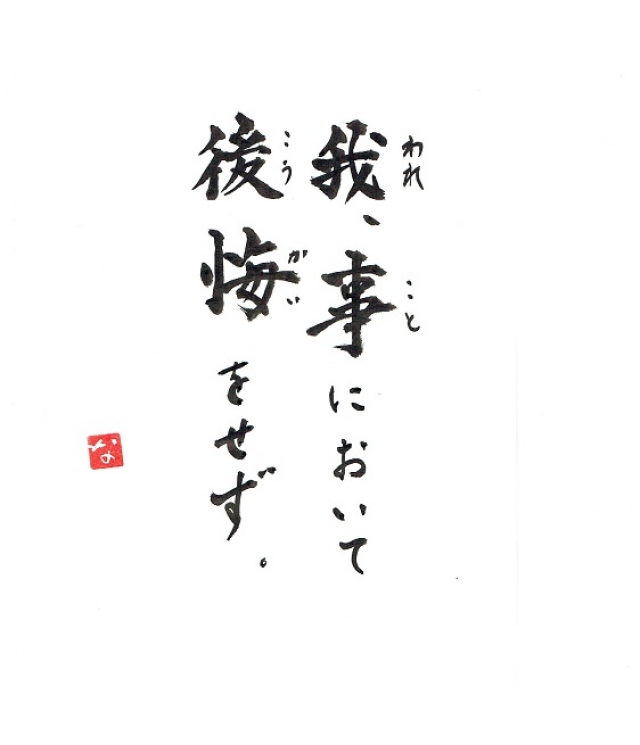 われ こと
我、事において
こう かい
後悔をせず。
な